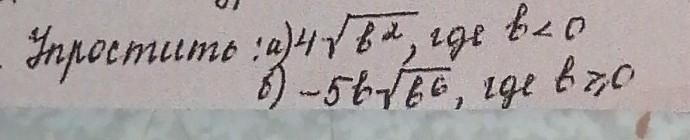 Упростить: а) 4√b², где b < 0
б) -5b√b⁶, где b ⩾ 0